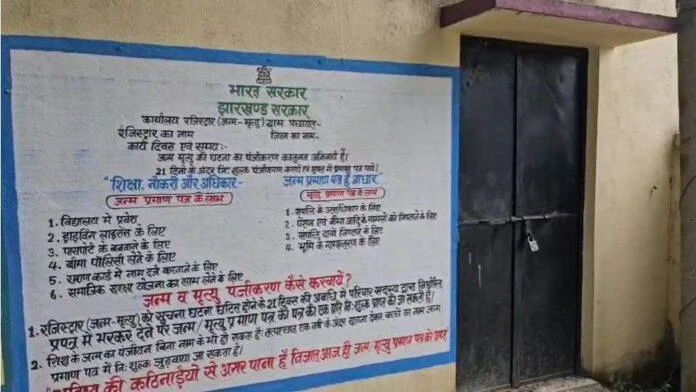 भारत सरकार
झारखण्ड सरकार
कार्यालय रजिस्ट्रार (जन्म-मृत्यु) ग्राम पंचायत-
रजिस्ट्रार का नाम जिला का नाम-
कार्य दिवस एवं समय:-
जन्म मृत्यु की घटना का पंजीकरण कानूनन अनिवार्य है।
21 दिनों के अंदर निःशुल्क पंजीकरण कराएं एवं मुफ्त में प्रमाण पत्र पायें।
"शिक्षा, नौकरी और अधिकार- जन्म प्रमाण पत्र है आधार"
जन्म प्रमाण पत्र के लाभ
मृत्यु प्रमाण पत्र के लाभ
1. विद्यालय में प्रवेश
2. ड्राइविंग लाइसेंस के लिए
3. पासपोर्ट के बनवाने के लिए
4. बीमा पॉलिसी लेने के लिए
5. राशन कार्ड में नाम दर्ज करवाने के लिए
6. समाजिक सुरक्षा योजना का लाभ लेने के लिए
1. संपत्ति के उत्तराधिकार के लिए
2. पेंशन एवं बीमा आदि के मामलों को निपटाने के लिए
3. संपत्ति दावों निपटाने के लिए
4. भूमि के नामांतरण के लिए
जन्म व मृत्यु पंजीकरण कैसे करवायें?
1. रजिस्ट्रार (जन्म-मृत्यु) को सूचना घटना घटित होने के 21 दिवस की अवधि में परिवार सदस्य द्वारा निर्धारित
प्रपत्र में भरकर देने पर जन्म/मृत्यु प्रमाण पत्र की एक प्रति निःशुल्क प्राप्त की जा सकती है।
2. शिशु के जन्म का पंजीयन बिना नाम के भी हो सकता है। तत्पश्चात एक वर्ष के अंदर सूचना देकर बच्चे का नाम जन्म
प्रमाण पत्र में निःशुल्क जुड़वाया जा सकता है।
की कठिनाईयों से अगर पाना है निजात आज ही जन्म, मृत्यु प्रमाण पत्र करें प्राप्त